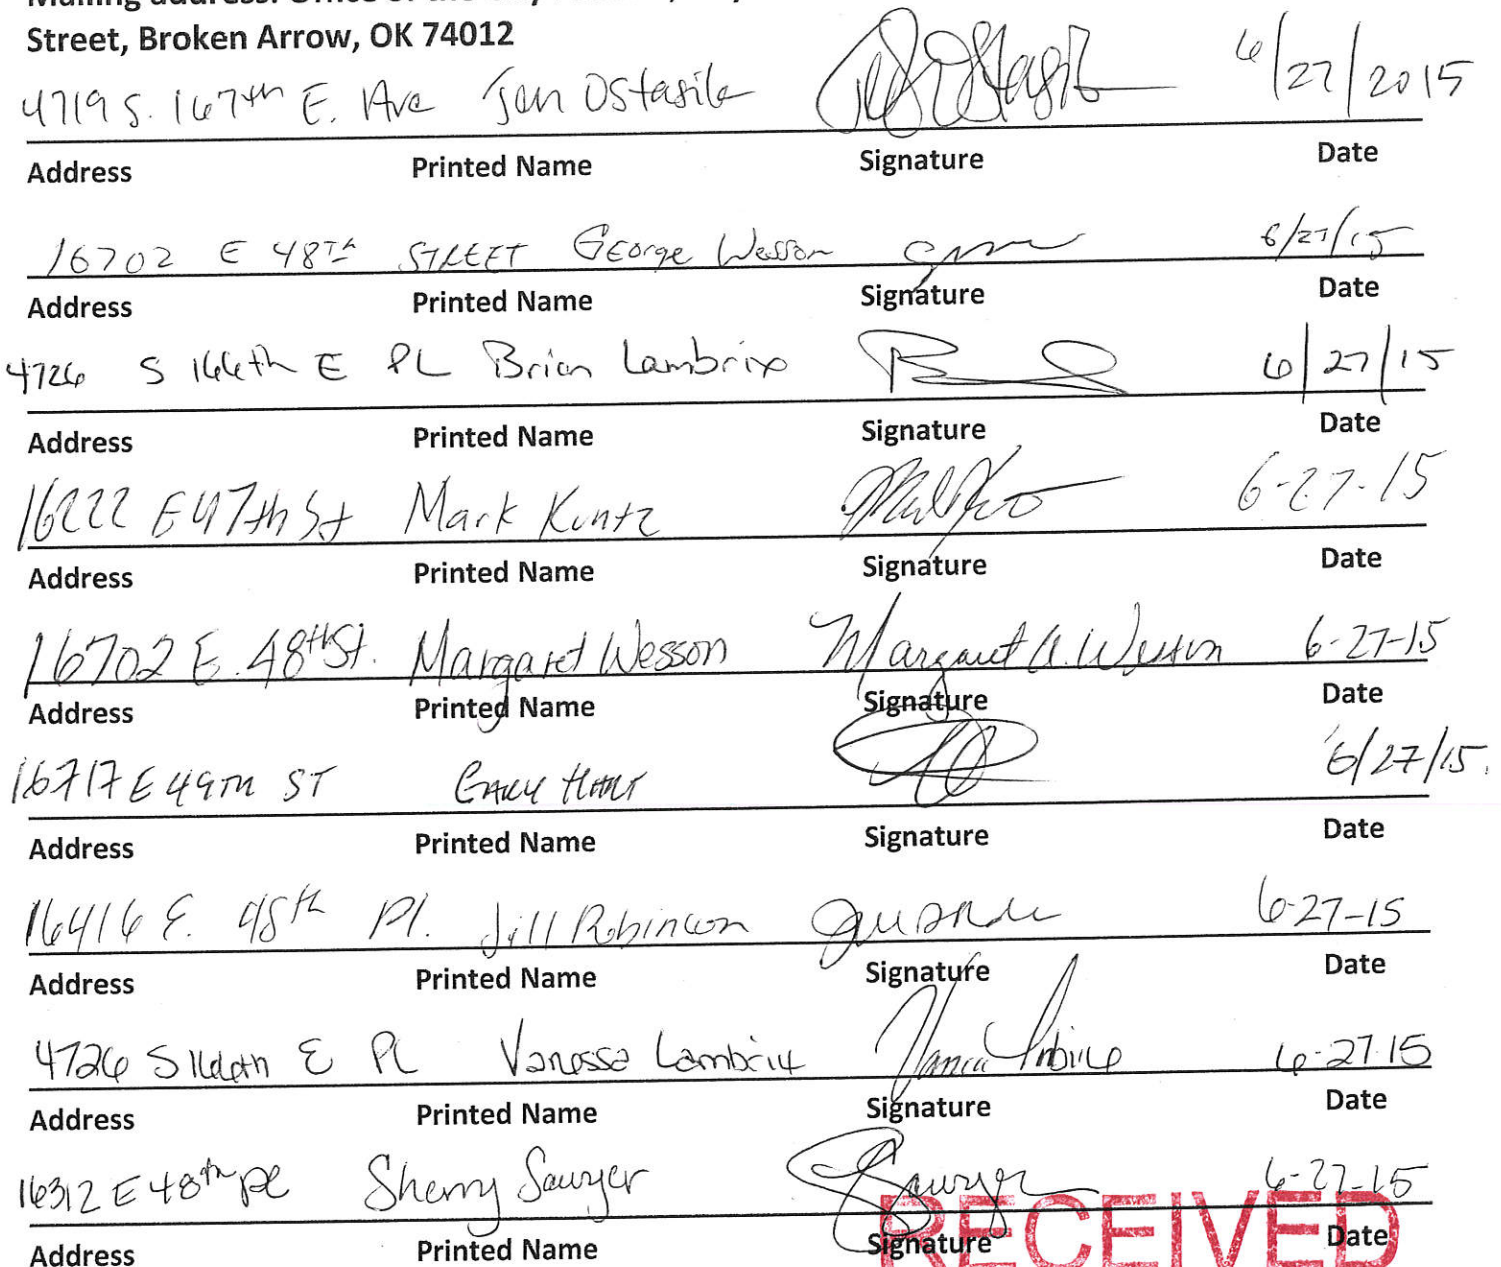 Mailing address: Office of the City
Street, Broken Arrow, OK 74012
4719 S. 167th E. Ave Jan Ostasik 6/27/2015
Address Printed Name Signature Date
16702 E 48TH STREET George Wesson 6/27/15
Address Printed Name Signature Date
4726 S 166th E PL Brian Lambrix 6/27/15
Address Printed Name Signature Date
16222 E 47th St Mark Kuntz 6-27-15
Address Printed Name Signature Date
16702 E. 48th St. Margaret Wesson Margaret A. Wesson 6-27-15
Address Printed Name Signature Date
16717 E 49TH ST GARY HART 6/27/15.
Address Printed Name Signature Date
16416 E. 48th Pl. Jill Robinson 6-27-15
Address Printed Name Signature Date
4726 S 166th E PL Vanessa Lambrix 6-27-15
Address Printed Name Signature Date
16312 E 48th pl Sherry Sawyer S Sawyer 6-27-15
RECEIVED
Address Printed Name Signature Date